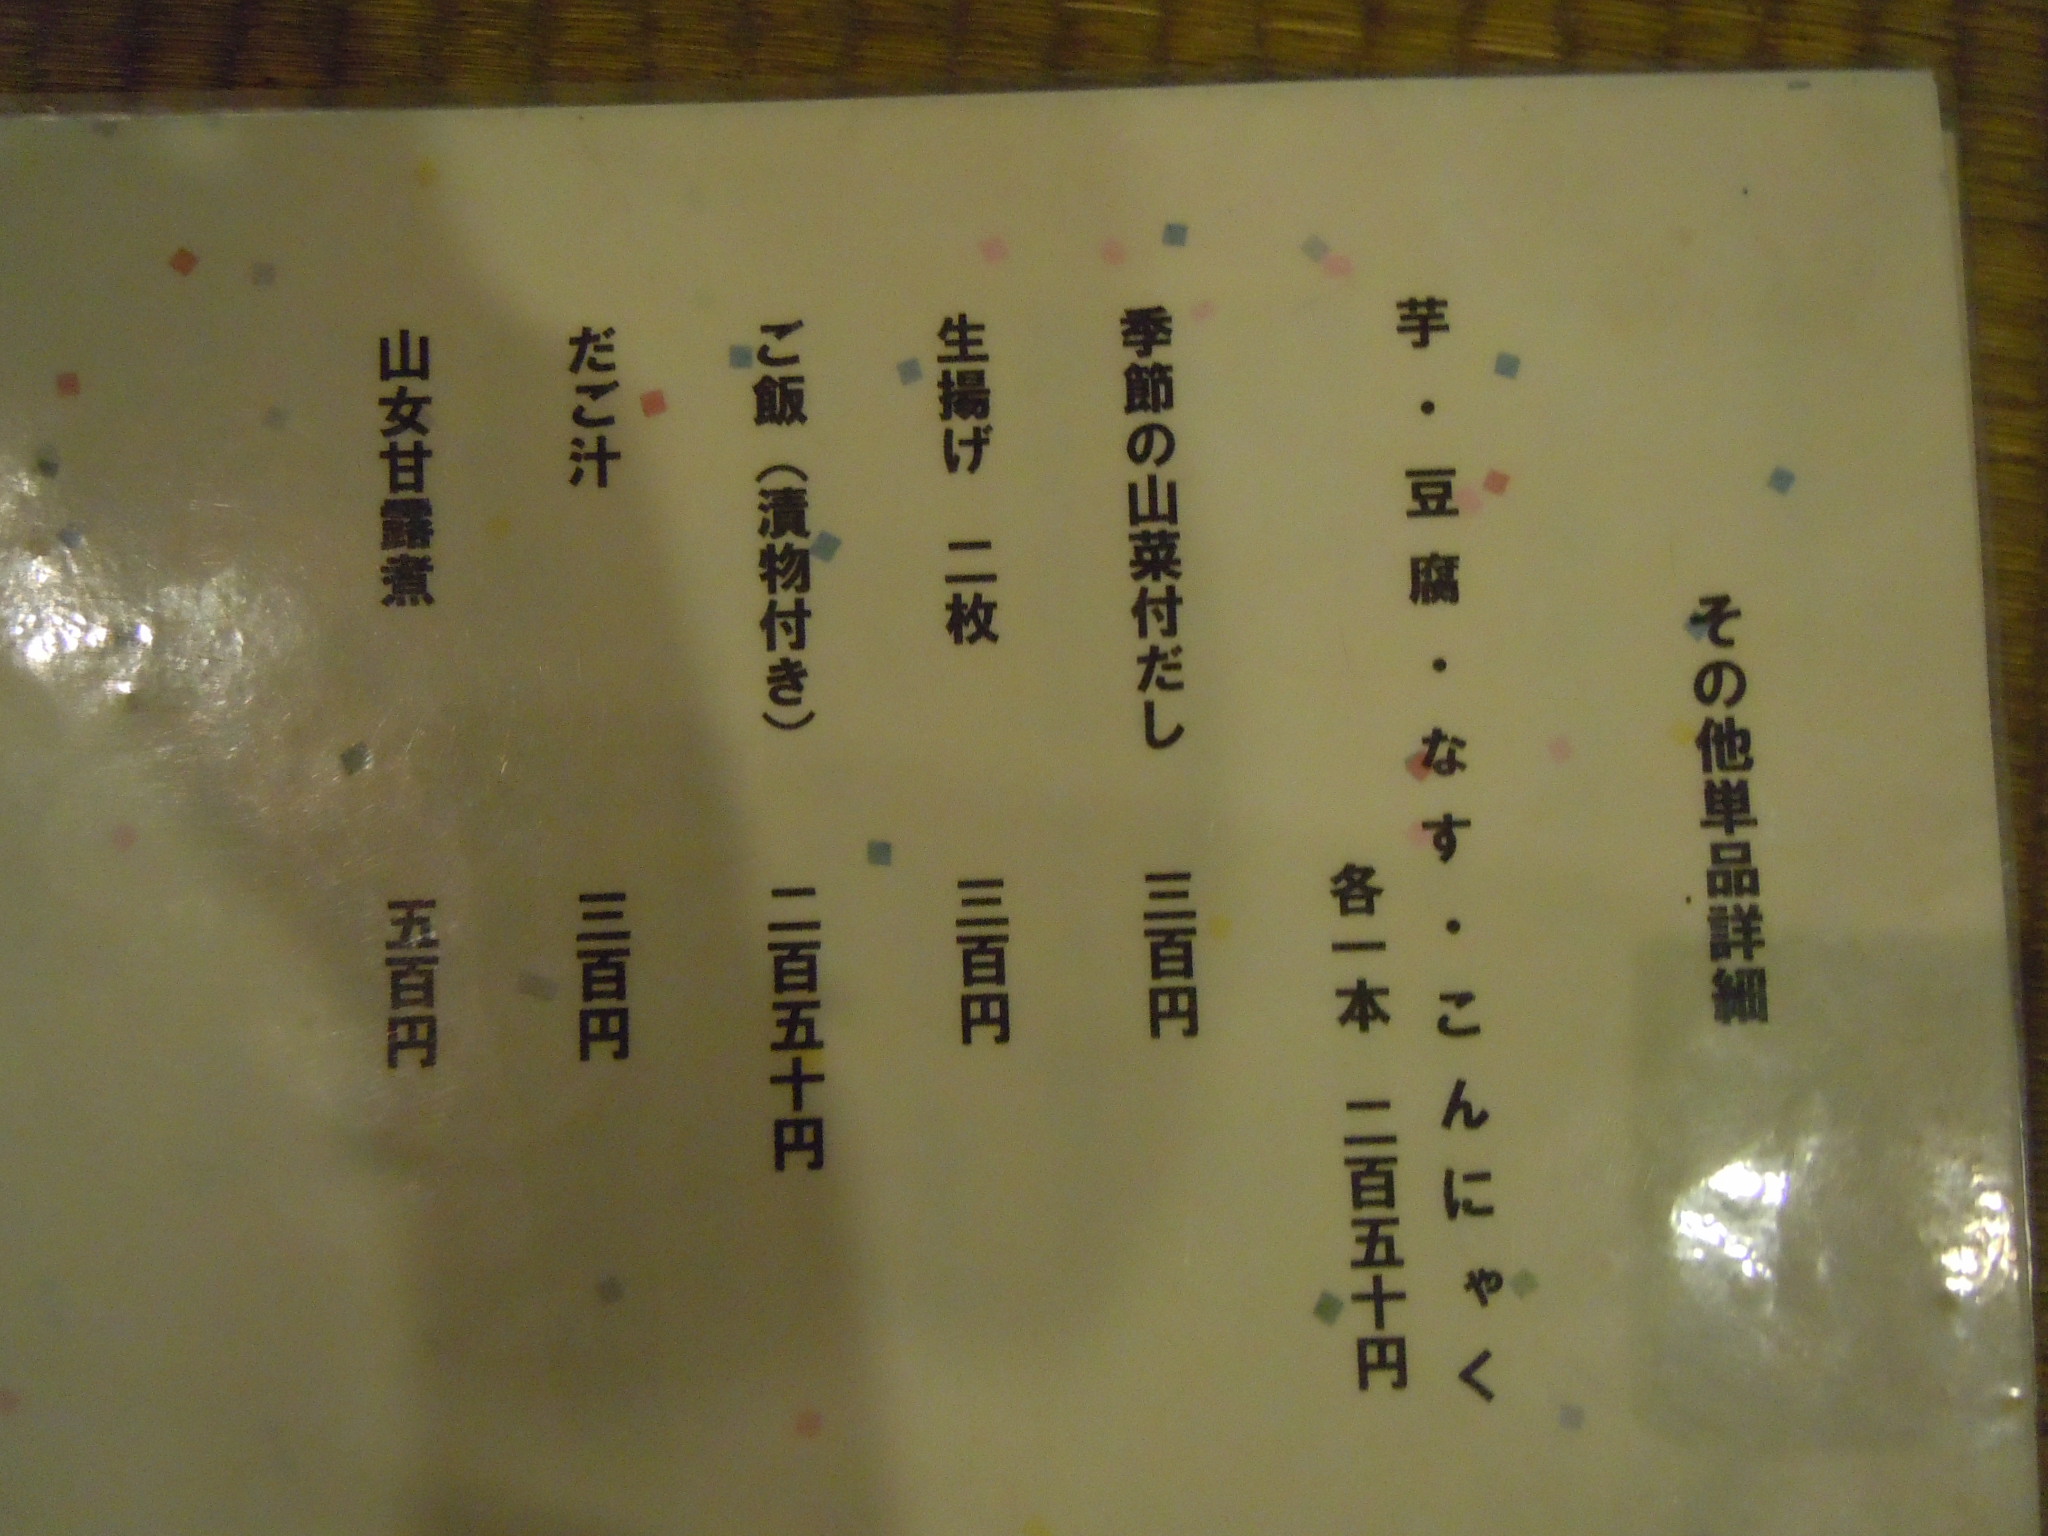 その他単品詳細
芋・豆腐・なす・こんにゃく
各一本 二百五十円
季節の山菜付だし 三百円
生揚げ 二枚 三百円
ご飯（漬物付き） 二百五十円
だご汁 三百円
山女甘露煮 五百円